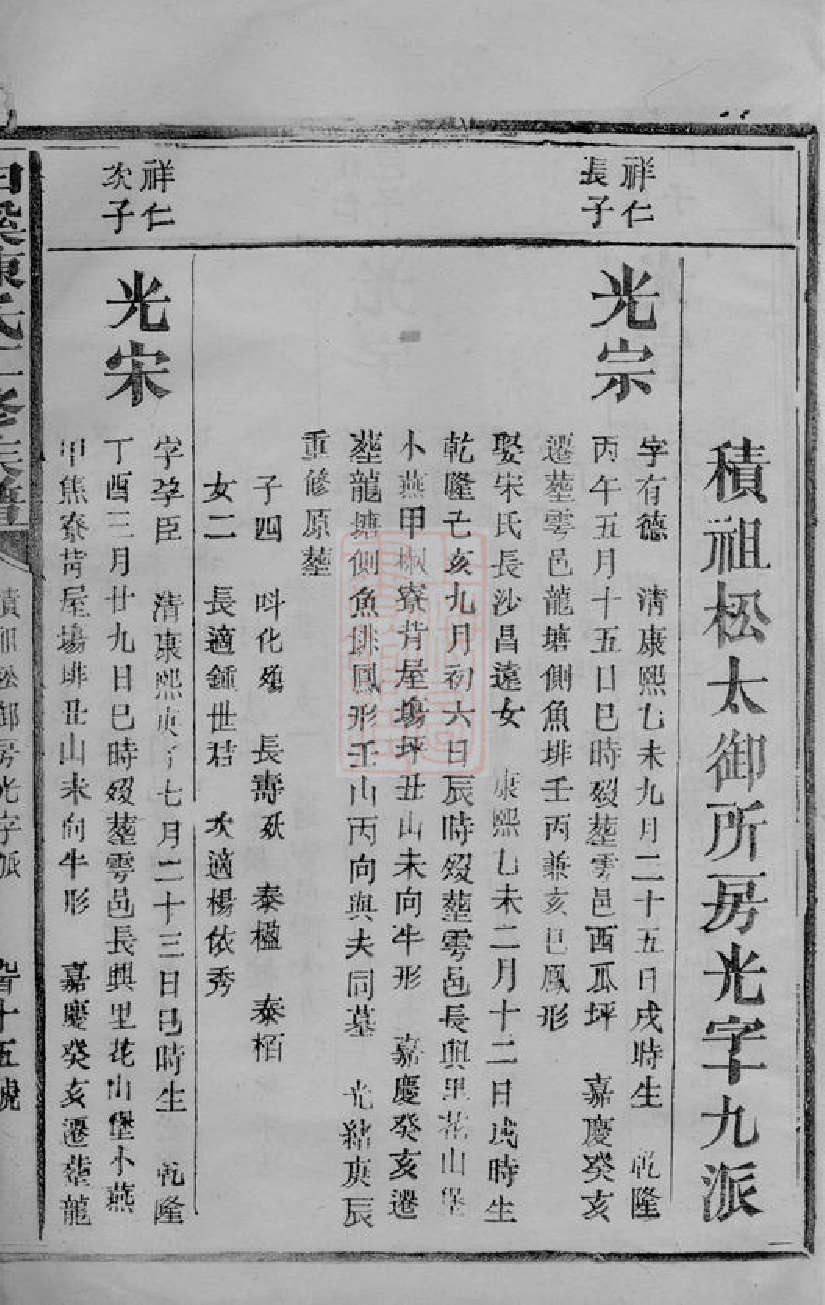 積祖松太御所房光字十九派
祥仁
長子
光宗
字有德 清康熙乙未九月二十五日戌時生 乾隆
丙午五月十五日巳時歿塟雩邑西瓜坪 嘉慶癸亥
遷塟雩邑龍塘側魚排壬丙兼亥巳鳳形
娶宋氏長沙昌遠女 康熙乙未二月十二日戌時生
乾隆己亥九月初六日辰時歿塟雩邑長興里花山堡
小燕甲椒寮背屋塲坪丑山未向牛形 嘉慶癸亥遷
塟龍塘側魚排鳳形壬山丙向與夫同墓 光緒庚辰
重修原塟
子四 化殤 長壽歿 泰楹 泰栢
女二 長適鍾世 次適楊依秀
祥仁
次子
光宋
字孕臣 清康熙庚子七月二十三日巳時生 乾隆
丁酉三月廿九日巳時歿塟雩邑長興里花山堡小燕
甲焦寮背屋塲排丑山未向牛形 嘉慶癸亥遷塟龍
陳氏三修族譜
積祖松御房光字派
十五號